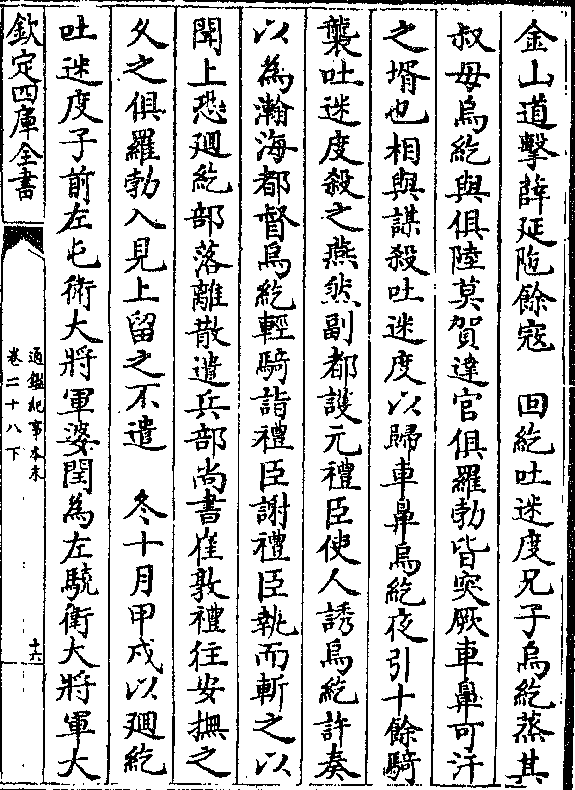 金山道擊薛延陁餘寇　回紇吐迷度兄子烏紇蒸其
叔母烏紇與俱陸莫賀達官俱羅勃皆突厥車鼻可汗
之壻也相與謀殺吐迷度以歸車鼻烏紇夜引十餘騎
襲吐迷度殺之燕然副都護元禮臣使人誘烏紇許奏
以為瀚海都督烏紇輕騎詣禮臣謝禮臣執而斬之以
聞上恐廻紇部落離散遣兵部尚書崔敦禮往安撫之
久之俱羅勃入見上留之不遣　冬十月甲戌以廻紇
吐迷度子前左屯衛大將軍婆閏為左驍衛大將軍大
欽定四庫全書
通鑑紀事本末
卷二十八下
十六